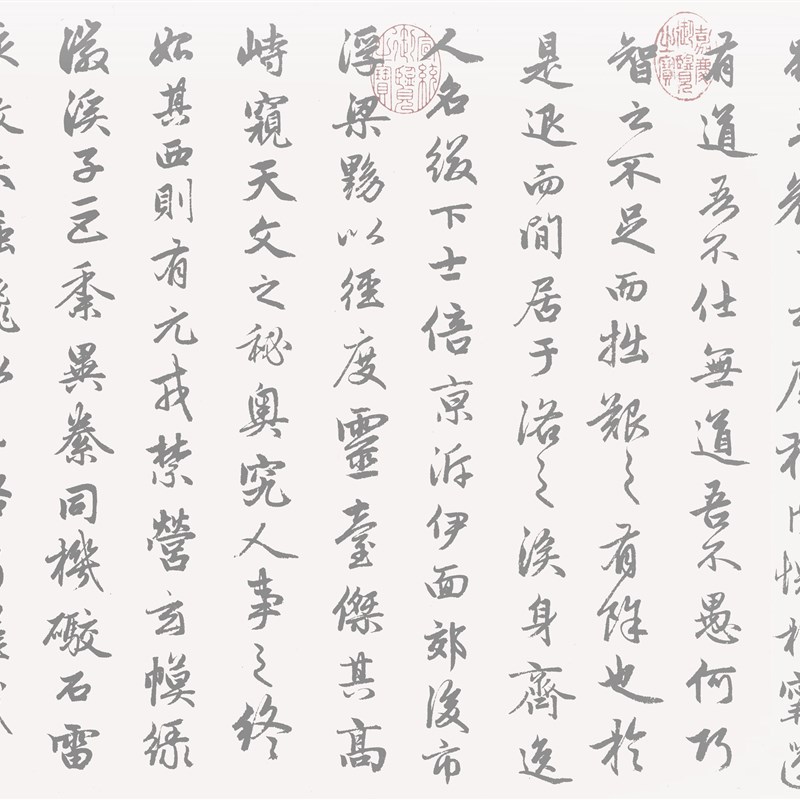 有道吾不仕無道吾不愚何巧
智之不足而拙艱之有餘也於
是退而閒居于洛之涘身齊逸
人名綴下士倍京泝伊面郊後市
浮梁黝以徑度靈臺傑其高
峙窺天文之秘奧究人事之終
始其西則有元戎禁營玄幙綠
徽溪子巨黍異絭同機礮石雷
嘉慶御覽之寶
宣統御覽之寶